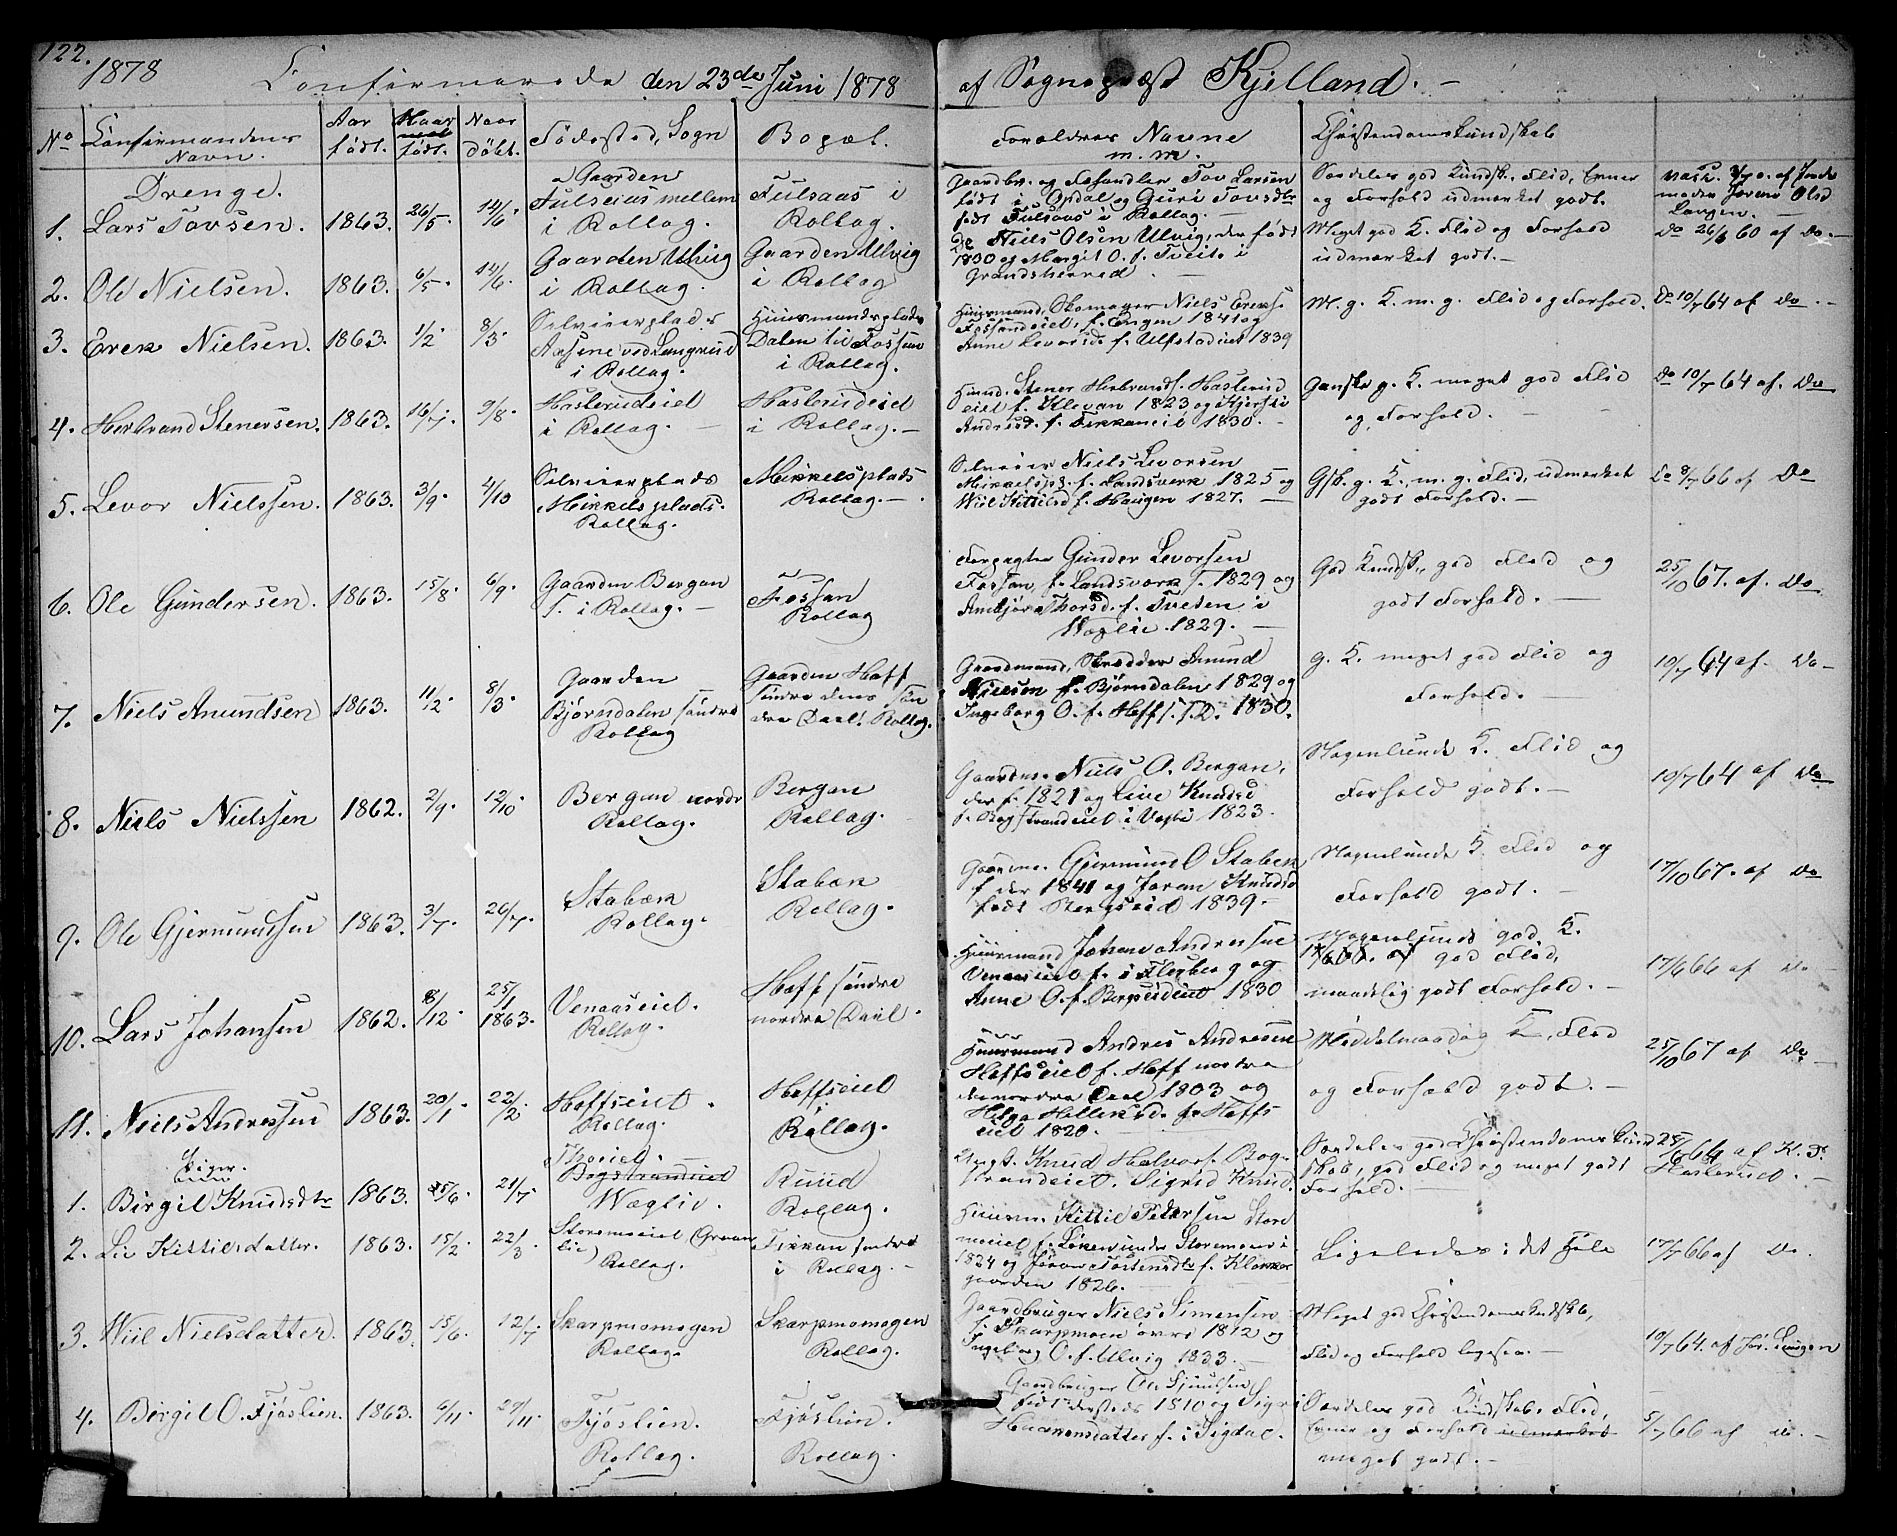 122.
1878
Confirmerede den 23de Juni 1878 af Sogneprest Kjelland. -
No Confirmandens Navn. Aar født. Naar født. Naar døbt. Fødested, Sogn Bopæl. Forældres Navne m. m. Christendomskundskab
Drenge.
1. Lars Tovsen. 1863. 26/5. 14/6.
Gaarden
Fulsaas mellem
i Rollag.
Fulsaas i
Rollag.
Gaardbr. og Fehandler Tov Larsen
født i Opdal og Guri Tovsdtr
født Fulsaas i Rollag. -
Særdeles god Kundsk., Flid, Evner
og Forhold udmærket godt.
2. Ole Nielsen. 1863. 6/5. 14/6.
Gaarden Ulvig
i Rollag.
Gaarden Ulvig
i Rollag
Do Niels Olsen Ulvig, der født
1830 og Margit O. f. Tveite i
Grandsherred. -
Meget god K. Flid og Forhold
udmærket godt. -
Do 26/6 60 af Do. -
3. Erek Nielsen. 1863. 1/2. 8/3.
Selveierplads
Aasene ved Langrud
i Rollag.
Huusmandsplads
Dalen til Fossan
i Rollag.
Huusmand, Skomager Niels Ereks.
Fossaneiet, f. Engen 1841 og
Anne Levorsd. f. Ulfstadeiet 1839
M. g. K. m. g. Flid og Forhold.
Do 10/7 64 af Do. -
4. Herbrand Stenersen. 1863. 16/7. 9/8.
Haslerudeiet
i Rollag. -
Haslerudeiet
i Rollag. -
Huusmd. Stener Herbrands. Haslerud
eiet f. Klevan 1823 og Kjersti
Andersd. f. Fekkan i 1830. -
Ganske g. K. meget god Flid
og Forhold. -
Do 10/7 64 af. Do
5. Levor Nielssen. 1863. 3/9. 4/10
Selveierplads
Mikkelsplads.
Rollag.
Mikkelsplads
Rollag. -
Selveier Niels Levorsen
Mikkelspl. f. Landsverk 1825 og
Wiil Kittilsd f. Haugen 1827. -
g. K. m. g. Flid, udmærket
godt Forhold. -
Do 8/7 66 af Do
6. Ole Gundersen. 1863. 15/8. 6/9.
Gaarden Bergan
S. i Rollag. -
Fossan
Rollag
Forpagter Gunder Levorsen
Fossan, f. Landsverk S. 1829 og
Ambjør Thorsd. f. Tveten i
Weglie 1829. -
God Kundsk., god Flid og
godt Forhold. -
25/10 67. af. Do
7. Niels Anundsen 1863. 11/2. 8/3.
Gaarden
Bjørndalen søndre
Rollag
Gaarden Hoff
søndre dens søn
dre Deel. Rollag.
Gaardmand, Skrædder Anund
Nielsen f. Bjørndalen 1829 og
Ingeborg O. f. Hoff s. s. D. 1830.
g. K. meget god Flid og
Forhold. -
10/7 64 af. Do -
8. Niels Nielssen 1862. 2/9. 12/10.
Bergan nordr
Rollag.
Bergan
Rollag.
Gaardm. Niels O. Bergan,
der f. 1821 og Live Knudsd
f. Bogstrandeiet i Vegli 1823.
Nogenlunde K. Flid og
Forhold godt. -
10/7 64 af Do
9. Ole Gjermundsen 1863. 3/7. 26/7.
Stabæk
Rollag.
Stabæk
Rollag.
Gaardm. Gjermund O Stabæk
f. der 1841 og Joran Knudsd
født Bergseid 1839. -
Nogenlunde K. Flid og
Forhold godt. -
17/10 67. af Do
10. Lars Johansen 1862. 8/12. 25/1 1863.
Venaaseiet.
Rollag.
Hoff søndre
nordre Deel.
Huusmand Johan Andersen
Venaaseiet f. i Flesberg og
Anne O. f. Bergseideiet 1830
Nogenlunde god K.
god Flid,
maadelig godt Forhold. -
17/6 66 af Do -
11. Niels Andressen 1863. 20/1. 22/2.
Hoffseiet.
Rollag.
Hoffseiet
Rollag.
Huusmand Andres Andresen
Hoffseiet f. Hoff nordre
nordre Deel 1803 og
Helga Helleksd. f. Hoffs
eiet 1820. -
Middelmaadig K., Flid
og Forhold godt. -
25/10 67 af Do -
Piger.
1. Birgit Knudsdtr 1863. 25/6. 21/7.
Bogstrandeiet
Wæglie.
Ruud
Rollag.
Ungk. Knud Halvors. Bog-
strandeiet. Sigrid Knud.
Særdeles god Christendomskund
skab, god Flid og meget godt
Forhold. -
25/6 64 af K. S.
Haslerud. -
2. Liv Kittilsdatter. 1863. 15/2. 22/3.
Storemoeiet (Graan
lie)
Rollag.
Fekkan søndre
i Rollag. -
Huusm. Kittil Pedersen Store
moeiet f. Løken under Storemoen i
1824 og Jøran Torstensdtr f. Klokker
gaarden 1826. -
Ligeledes i det Hele
17/7 66 af Do.
3. Wiil Nielsdatter. 1863. 15/6. 12/7
Skarpmomogen
Rollag.
Skarpmomogen
Rollag.
Gaardbruger Niels Simensen
f. Skarpmoen øvre 1812 og
Ingeborg O. f. Ulvig 1833. -
Meget god Christendomskundskab,
Flid og Forhold ligesaa. -
10/7 64. af Jør. Langen
4. Birgit O. Fjøslien. 1863. 6/11. 29/11.
Fjøslien.
Rollag.
Fjøslien.
Rollag.
Gaardbruger Ole
født sammesteds 1810 og Sigri
Haavensdatter f. i Sigdal.
Særdeles god Kundskab, Flid,
Evner og Forhold udmærket
meget godt. -
5/7 66 af Do. -